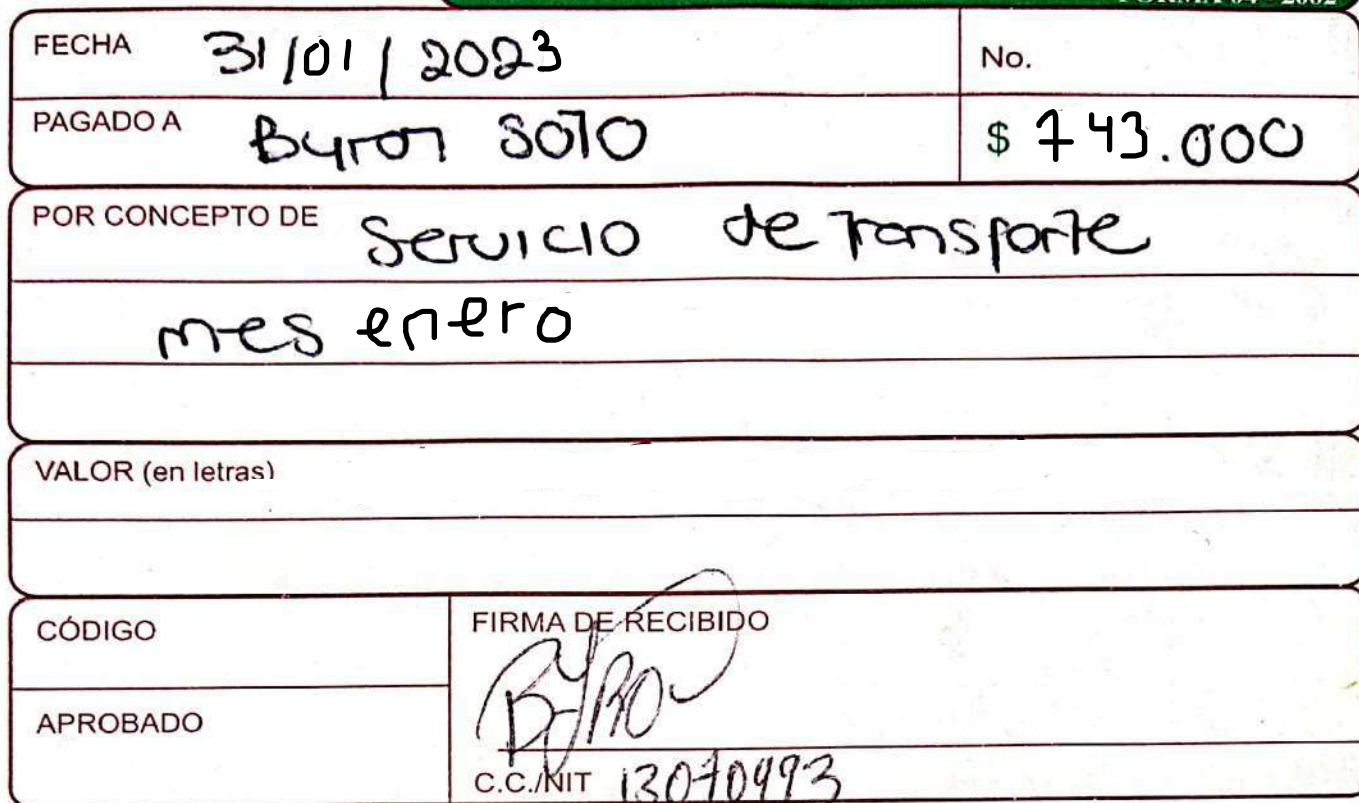 FECHA 31/01/2023 No.
PAGADO A Byron SOTO $ 743.000
POR CONCEPTO DE Servicio de Transporte
mes enero
VALOR (en letras)
CÓDIGO FIRMA DE RECIBIDO
APROBADO
C.C./NIT 13070493